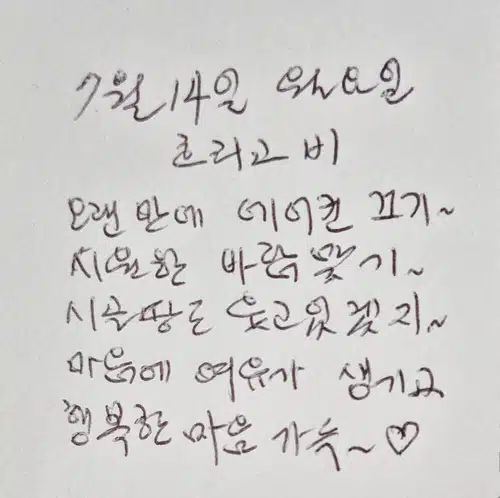 7월 14일 월요일
흐리고 비
오랜만에 에어컨 끄기~
시원한 바람 맞기~
시골땅도 웃고있겠지~
마음에 여유가 생기고
행복한 마음 가득~♡